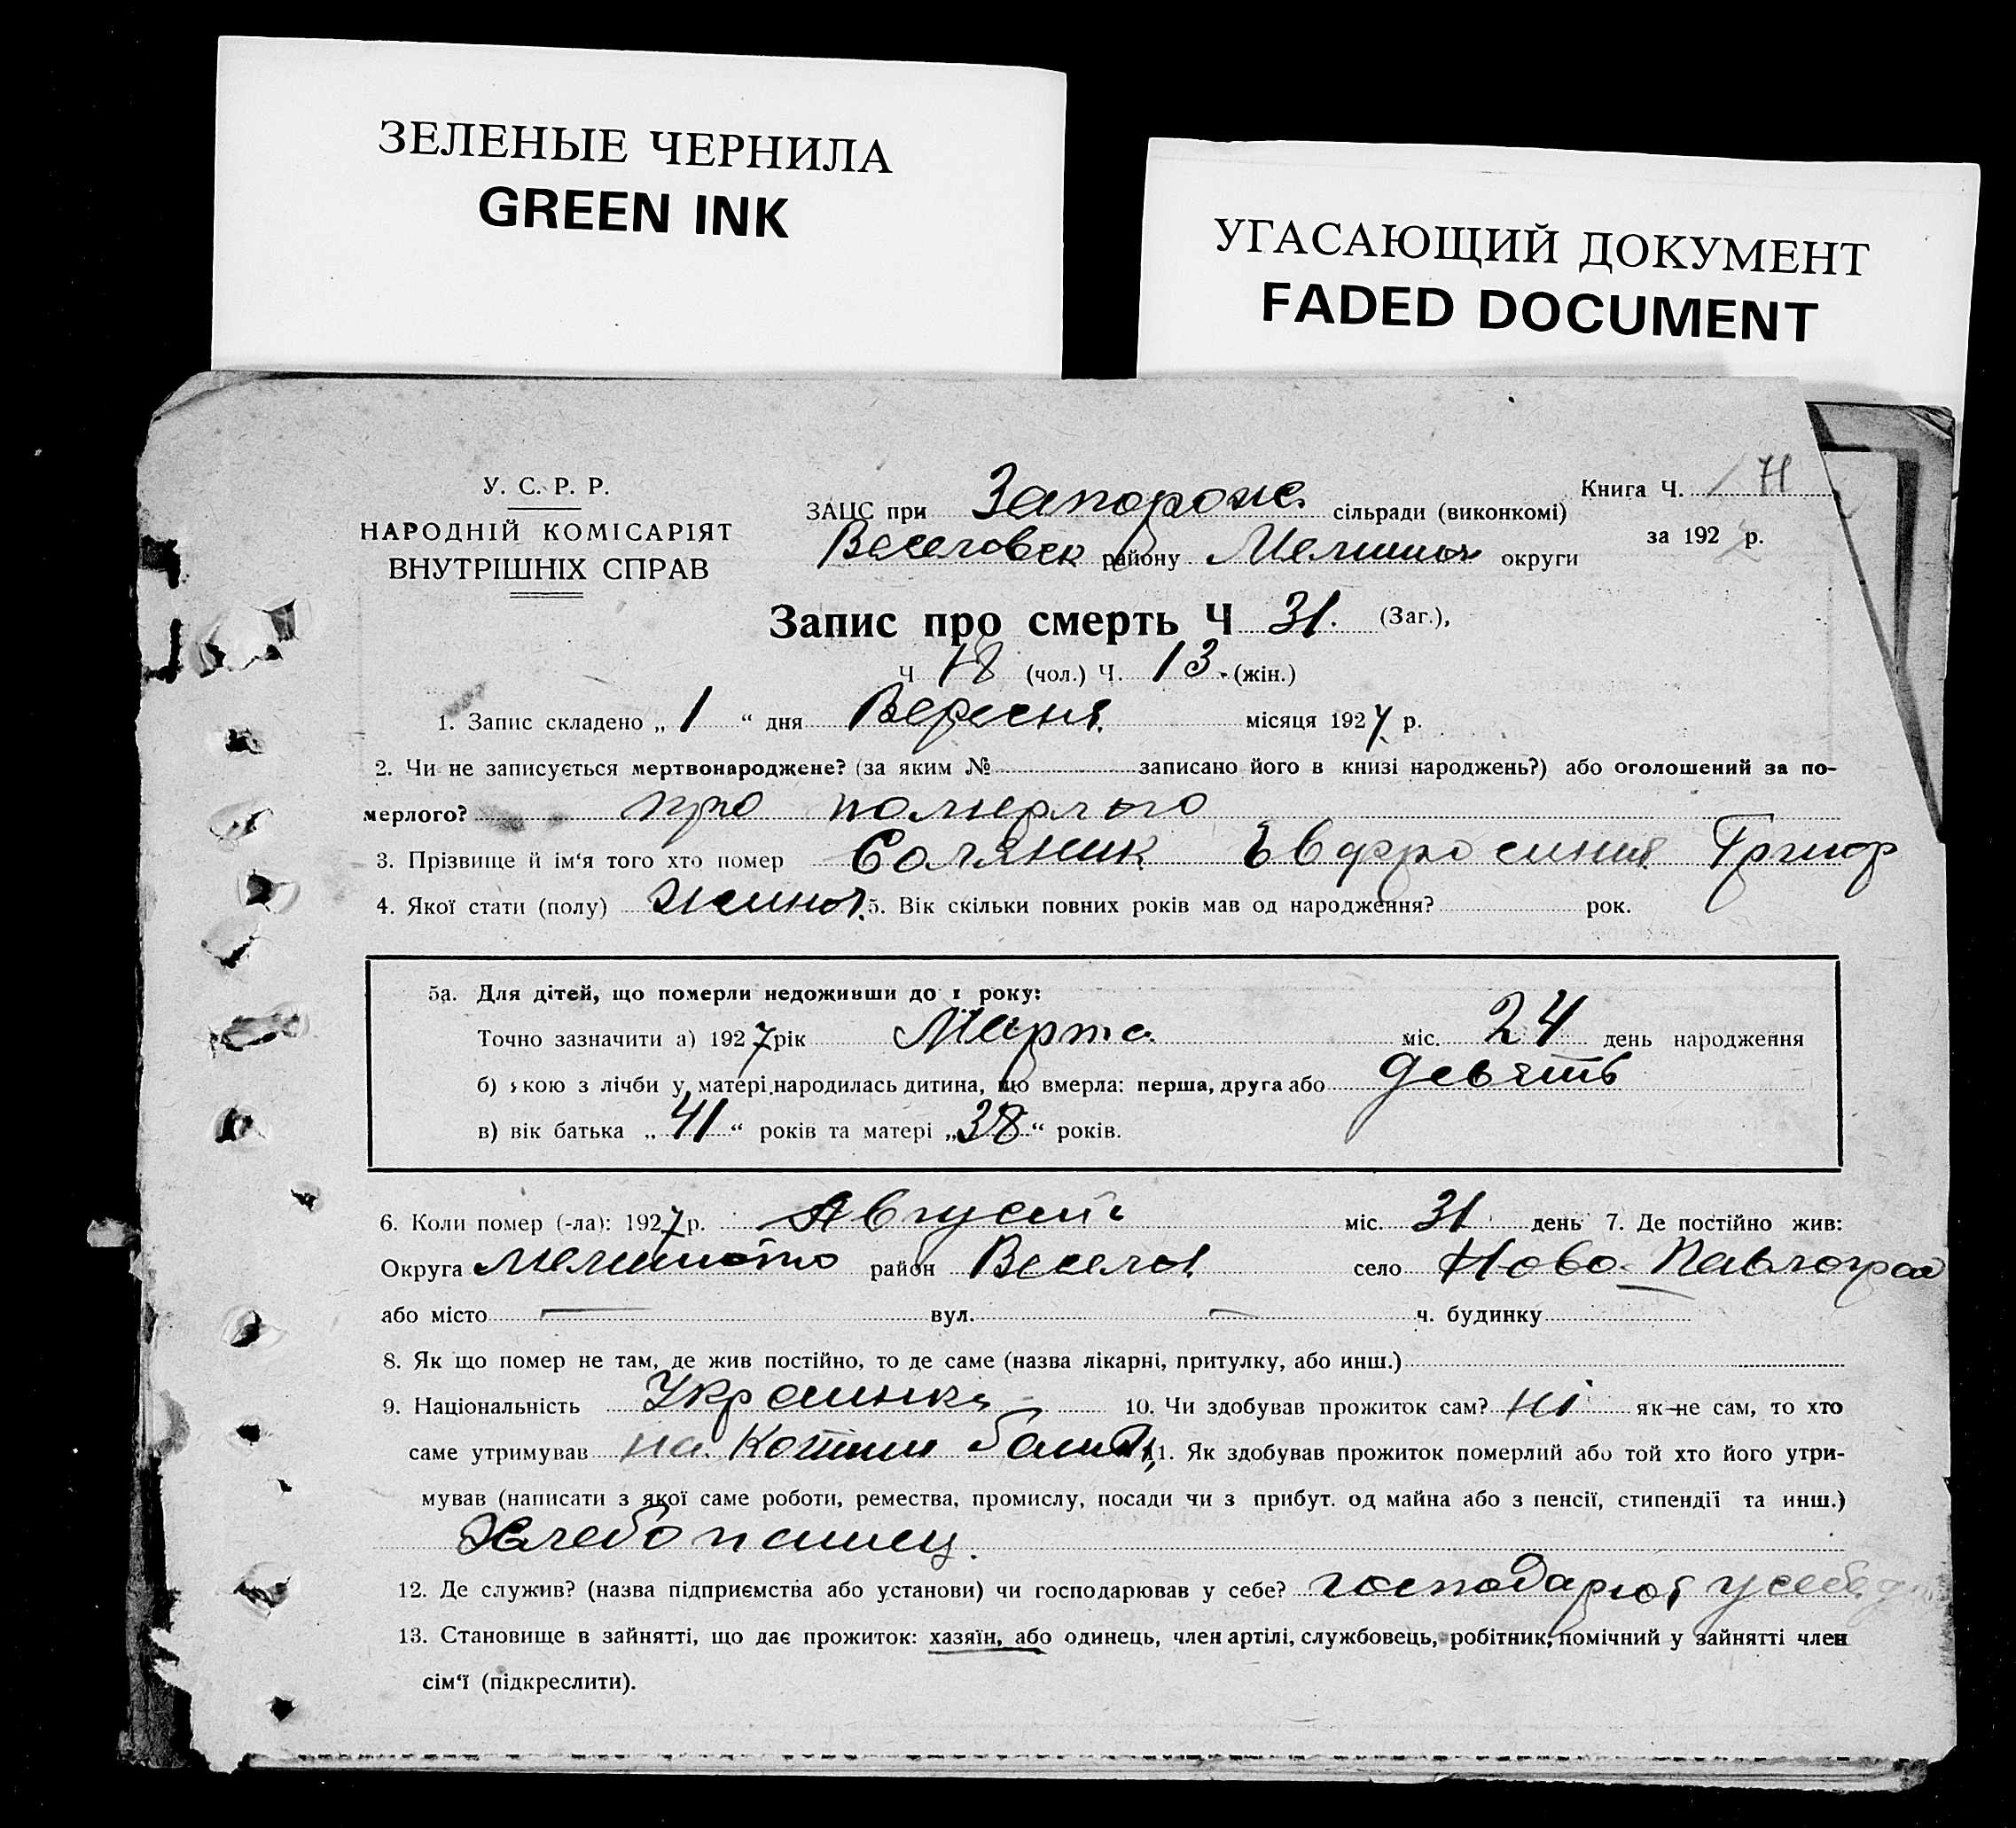 ЗЕЛЕНЫЕ ЧЕРНИЛА
GREEN INK
УГАСАЮЩИЙ ДОКУМЕНТ
FADED DOCUMENT
У. С. Р. Р.
НАРОДНІЙ КОМІСАРІЯТ
ВНУТРІШНІХ СПРАВ
Книга Ч.
ЗАЦС при Запорож. сільради (виконкомі)
за 192 р.
Веселовск району Мелитоп округи
Запис про смерть Ч 31. (Заг.),
Ч 18 (чол.) Ч. 13. (жін.)
1. Запис складено „ 1 “ дня Вересня місяця 1927 р.
2. Чи не записується мертвонароджене? (за яким № записано його в книзі народжень?) або оголошений за по-
мерлого? про померлого
3. Прізвище й ім‘я того хто помер Соляник Евфросиния Григор
4. Якої стати (полу) жиноч. 5. Вік скільки повних років мав од народження? рок.
5а. Для дітей, що померли недоживши до 1 року:
Точно зазначити а) 1927 рік Марта міс. 24 день народження
б) якою з лічби у матері народилась дитина, що вмерла: перша, друга або девять
в) вік батька „ 41 “ років та матері „ 38 “ років.
6. Коли помер (-ла): 1927 р. Август міс. 31 день 7. Де постійно жив:
Округа район Весело село Ново-Павлоград
або місто — вул. — ч. будинку
8. Як що помер не там, де жив постійно, то де саме (назва лікарні, притулку, або инш.)
9. Національність Украинка 10. Чи здобував прожиток сам? ні як не сам, то хто
саме утримував на кошти 11. Як здобував прожиток померлий або той хто його утри-
мував (написати з якої саме роботи, ремества, промислу, посади чи з прибут. од майна або з пенсії, стипендії та инш.)
Хлебопашец.
12. Де служив? (назва підприємства або установи) чи господарював у себе? господарюв у себе
13. Становище в зайнятті, що дає прожиток: хазяїн, або одинець, член артілі, службовець, робітник, помічний у зайнятті член
сім‘ї (підкреслити).